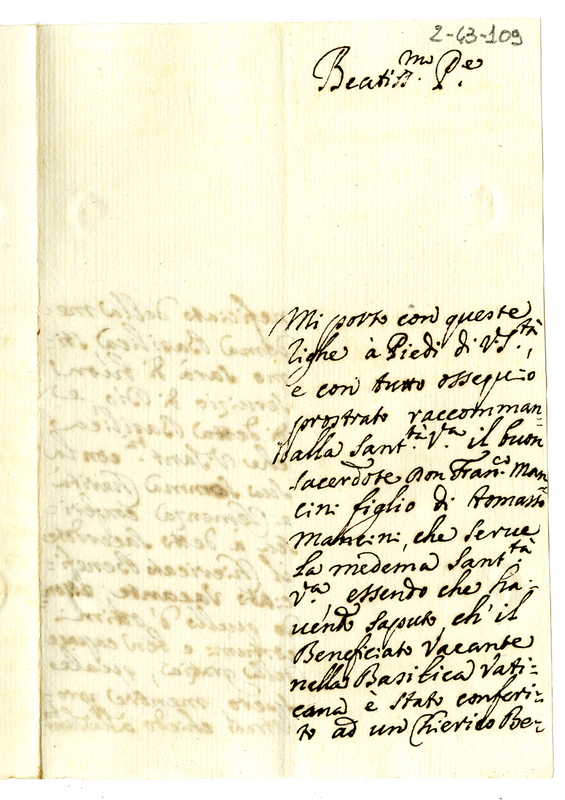 2-63-109
Beatiss.mo P.e
Mi porto con queste
righe à Piedi di V.S.tà,
e con tutto ossequio
prostrato raccomman=
dalla Sant.tà V.a il buon
sacerdote Don Fran.co Man=
cini figlio di Tomasso
Mancini, che serve
la medema Sant.tà
V.a essendo che ha=
uendo saputo, ch'il
Beneficiato Vacante
nella Basilica Vati=
cana è stato conferi=
to ad un Chierico Be=